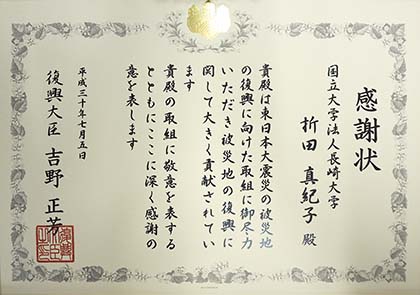 感謝状
国立大学法人長崎大学
折田 真紀子 殿
貴殿は東日本大震災の被災地
の復興に向けた取組に御尽力
いただき被災地の復興に
関して大きく貢献されてい
ます
貴殿の取組に敬意を表する
とともにここに深く感謝の
意を表します
平成三十年七月五日
復興大臣 吉野 正芳